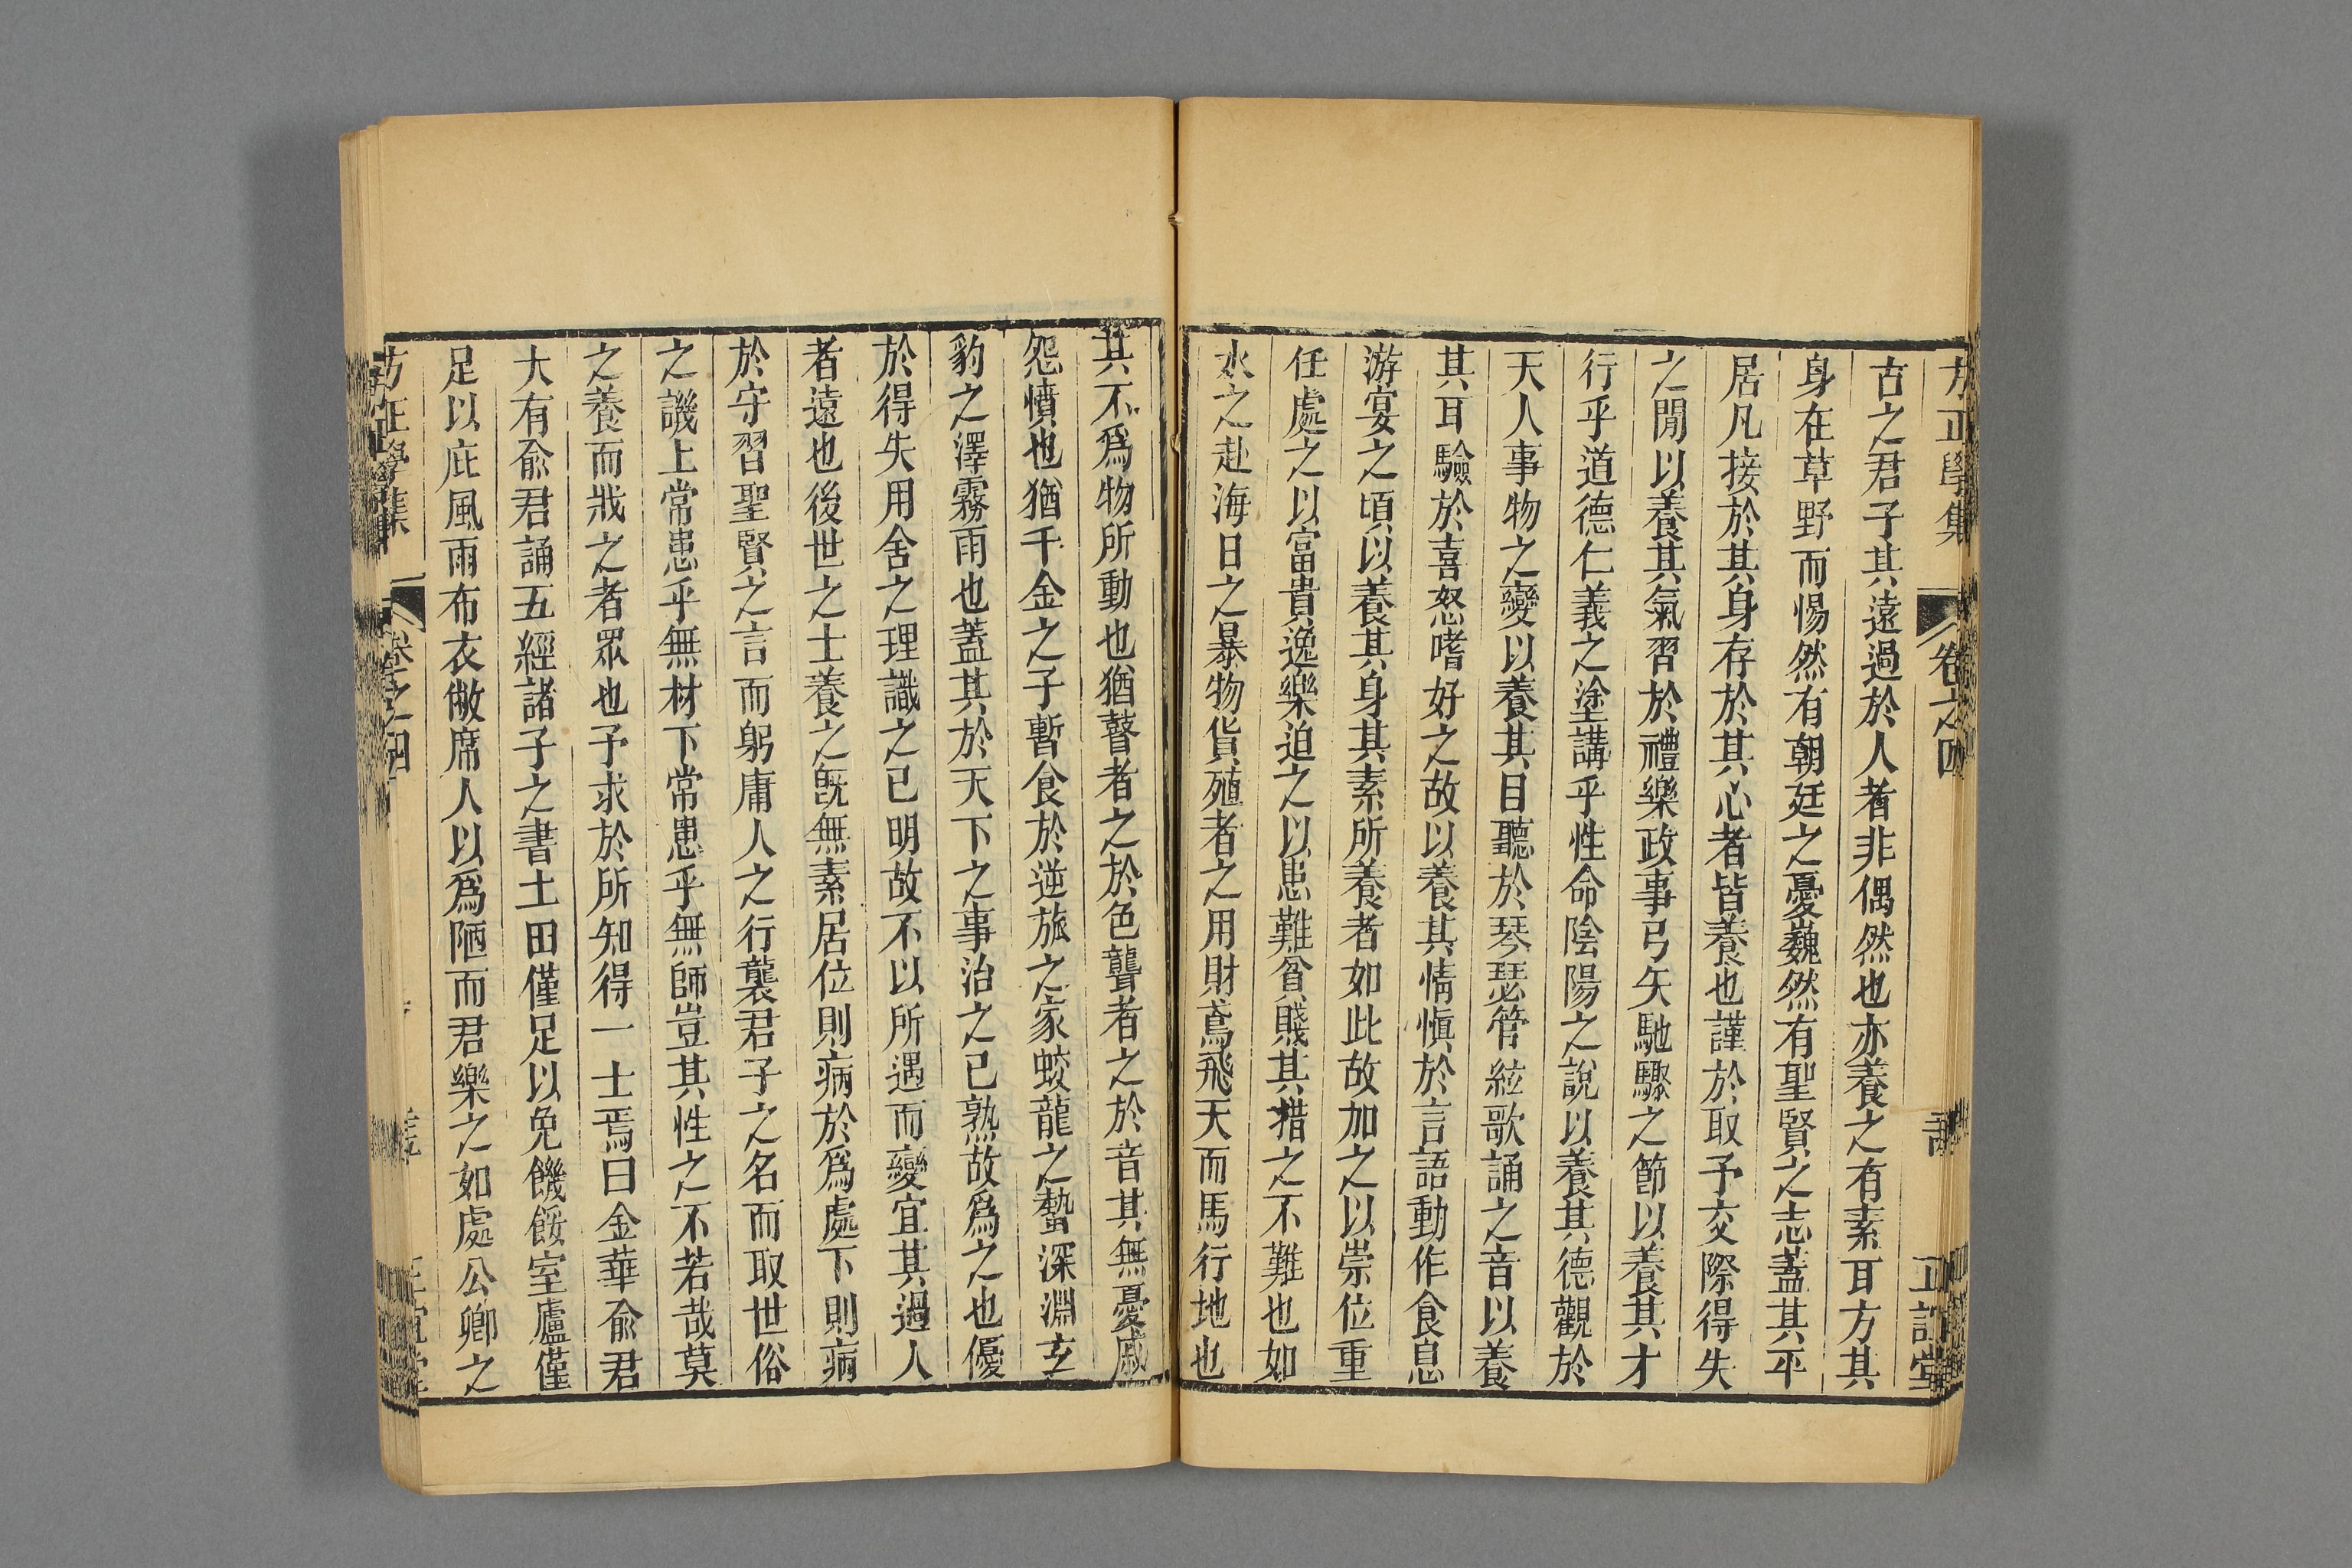 方正學集 卷之四 正誼堂
古之君子其遠過於人者非偶然也亦養之有素耳方其
身在草野而惕然有朝廷之憂巍然有聖賢之志蓋其平
居凡接於其身存於其心者皆養也謹於取予交際得失
之閒以養其氣習於禮樂政事弓矢馳驟之節以養其才
行乎道德仁義之塗講乎性命陰陽之說以養其德觀於
天人事物之變以養其目聽於琴瑟管絃歌誦之音以養
其耳驗於喜怒嗜好之故以養其情愼於言語動作食息
游宴之頃以養其身其素所養者如此故加之以崇位重
任處之以富貴逸樂迫之以患難貧賤其措之不難也如
水之赴海日之暴物貨殖者之用財鳶飛天而馬行地也
其不爲物所動也猶瞽者之於色聾者之於音其無憂戚
怨憤也猶千金之子暫食於逆旅之家蛟龍之蟄深淵玄
豹之澤霧雨也蓋其於天下之事治之已熟故爲之也優
於得失用舍之理識之已明故不以所遇而變宜其過人
者遠也後世之士養之旣無素居位則病於爲處下則病
於守習聖賢之言而躬庸人之行襲君子之名而取世俗
之譏上常患乎無材下常患乎無師豈其性之不若哉莫
之養而戕之者眾也予求於所知得一士焉曰金華俞君
大有俞君誦五經諸子之書土田僅足以免饑餒室廬僅
足以庇風雨布衣敝席人以爲陋而君樂之如處公卿之
方正學集 卷之四